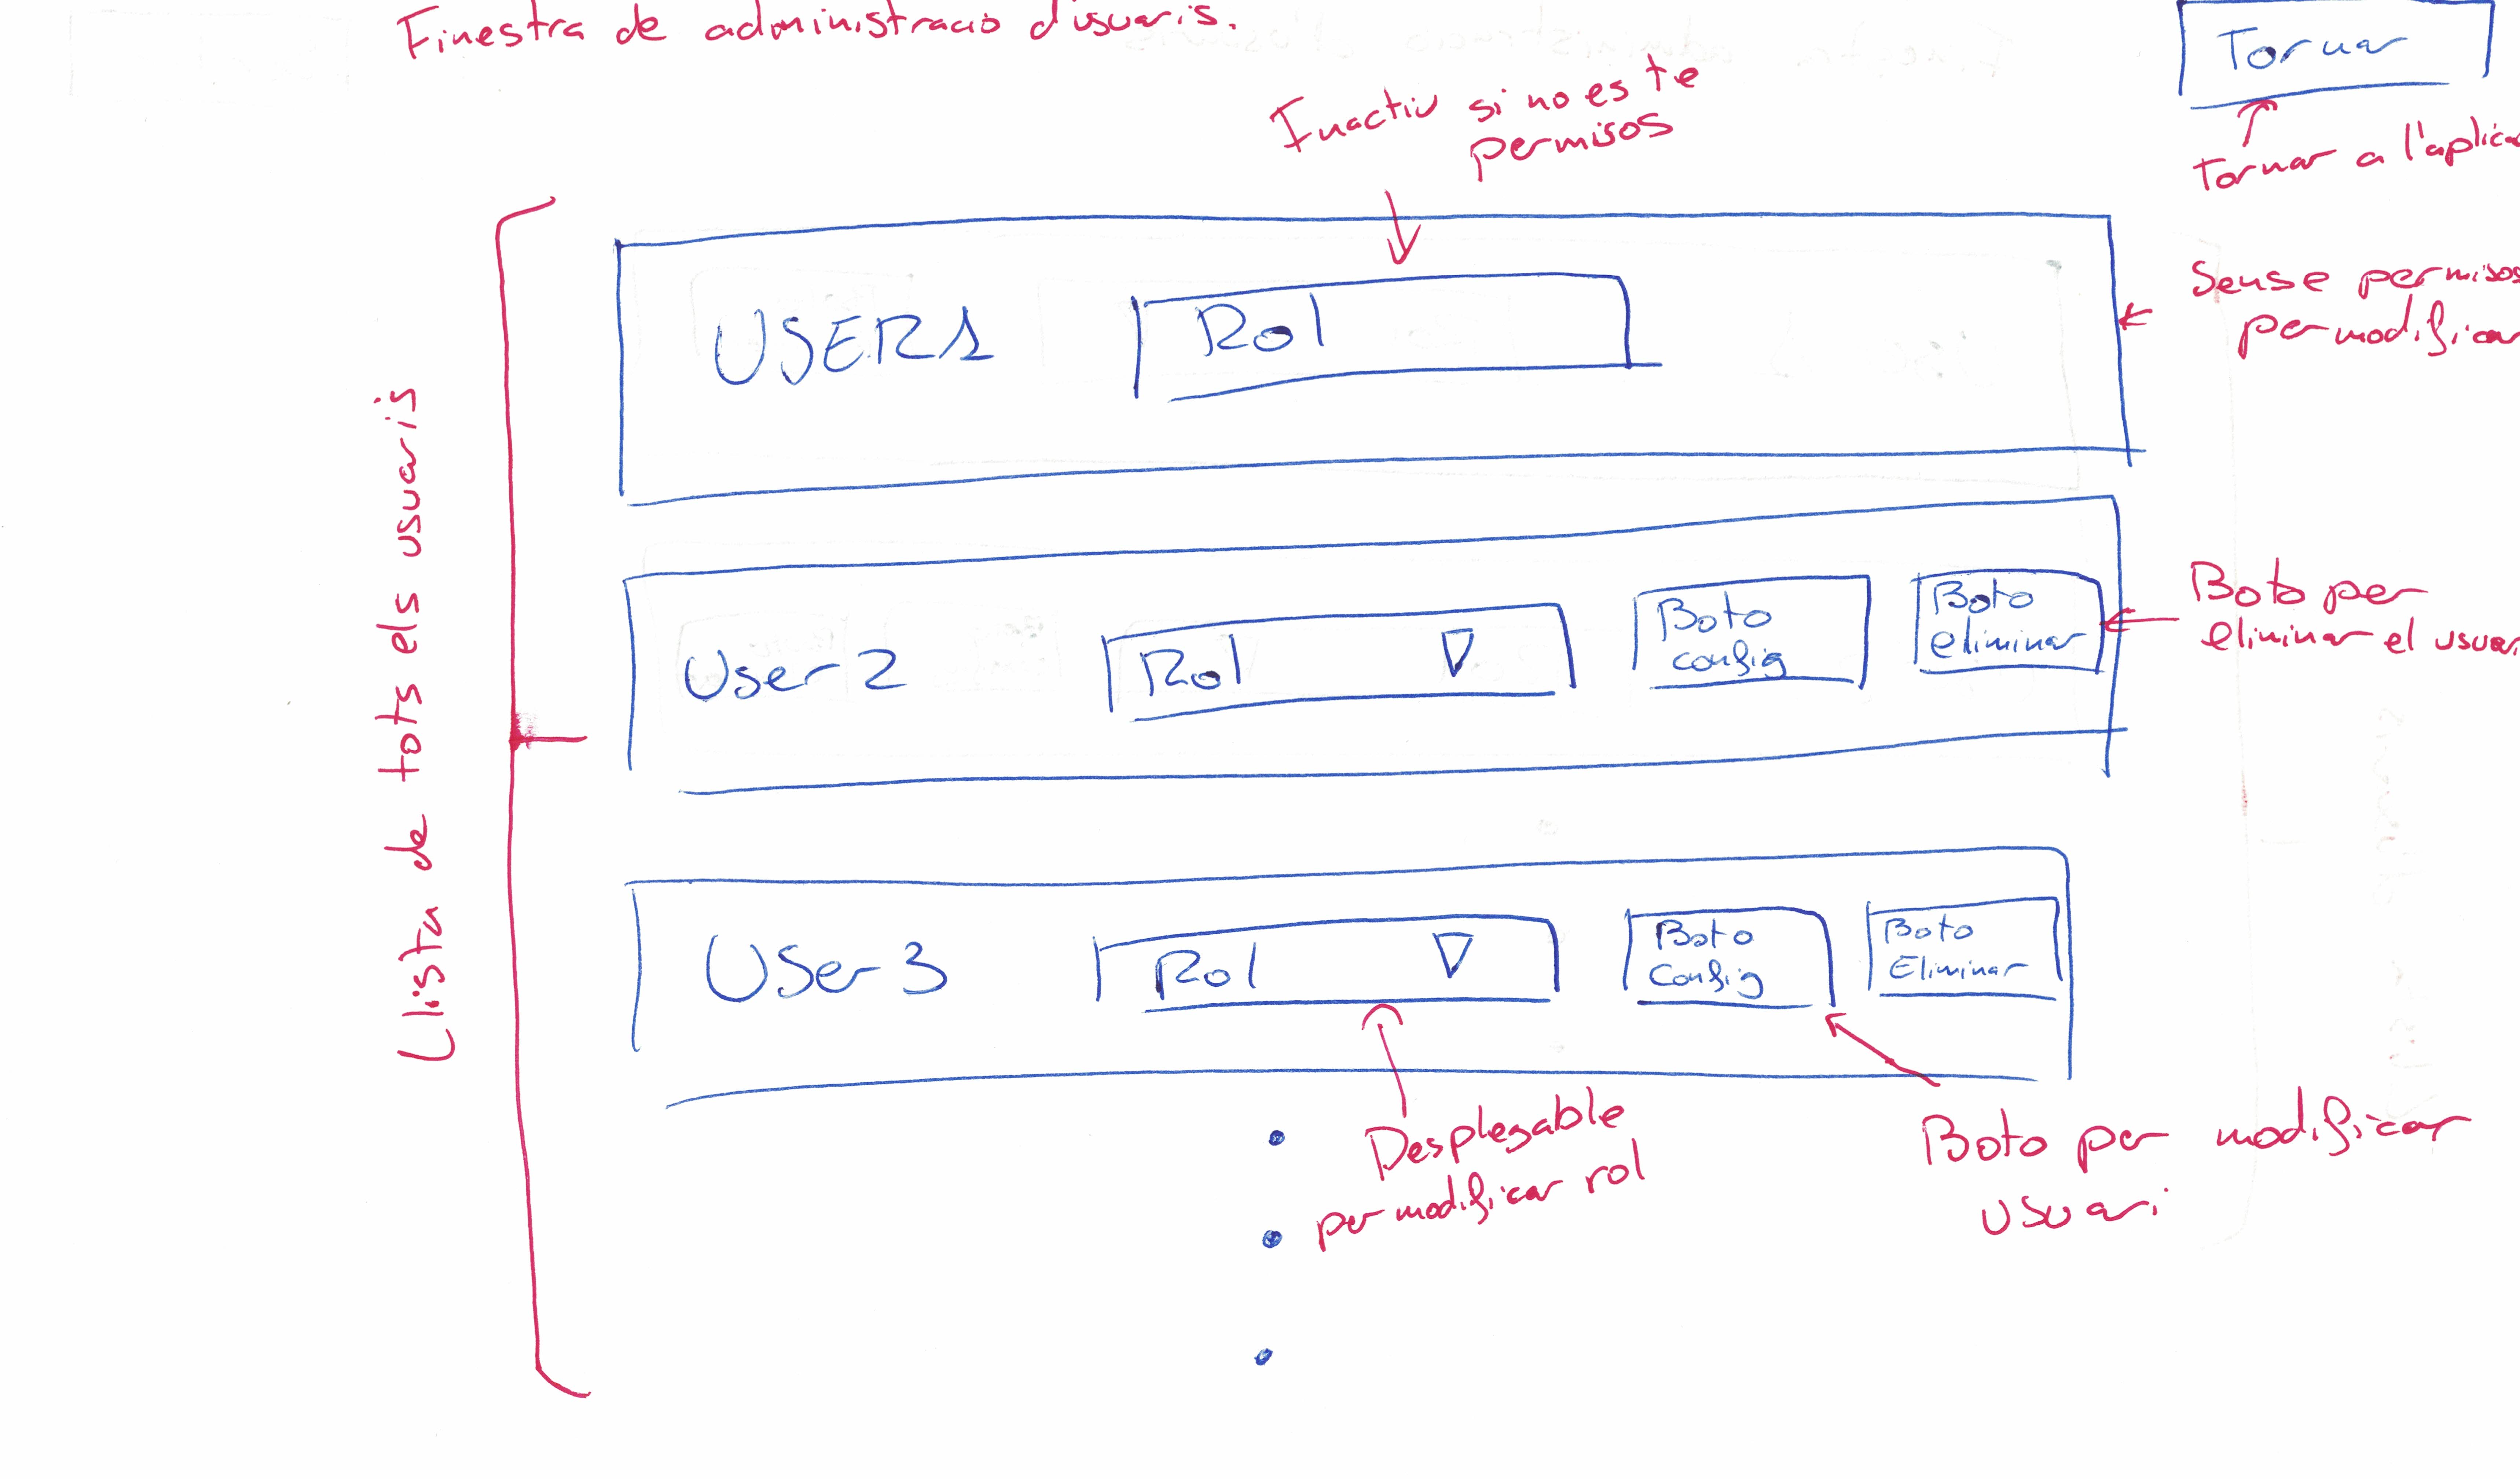 Finestra de administració d'usuaris.
Tornar
Tornar a l'aplica
Inactiu si no es te
permisos
Llista de tots els usuaris
USER1
Rol
Sense permisos
per modificar
User 2
Rol
Boto
config
Boto
eliminar
Boto per
eliminar el usuari
User 3
Rol
Boto
Config
Boto
Eliminar
Desplegable
per modificar rol
Boto per modificar
usuari